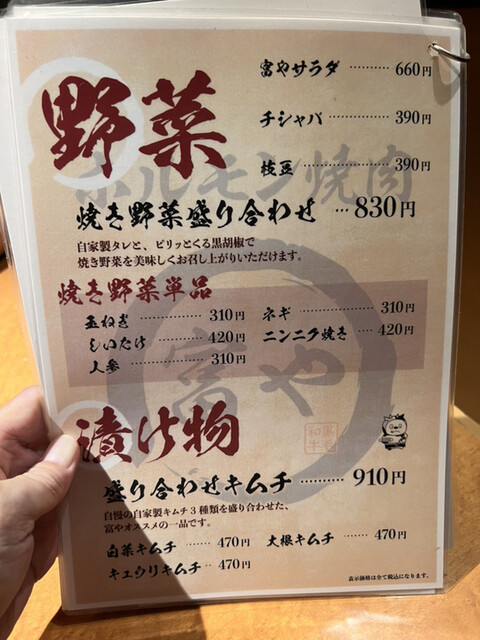 野菜
富やサラダ ………… 660円
チシャバ ………… 390円
枝豆 ………… 390円
ホルモン焼肉
焼き野菜盛り合わせ … 830円
自家製タレと、ピリッとくる黒胡椒で
焼き野菜を美味しくお召し上がりいただけます。
焼き野菜単品
玉ねぎ ………… 310円
ネギ ………… 310円
しいたけ ………… 420円
ニンニク焼き … 420円
人参 ………… 310円
富や
漬け物
黒毛和牛
盛り合わせキムチ ……… 910円
自慢の自家製キムチ3種類を盛り合わせた、
富やオススメの一品です。
白菜キムチ …… 470円
大根キムチ …… 470円
キュウリキムチ … 470円
表示価格は全て税込になります。